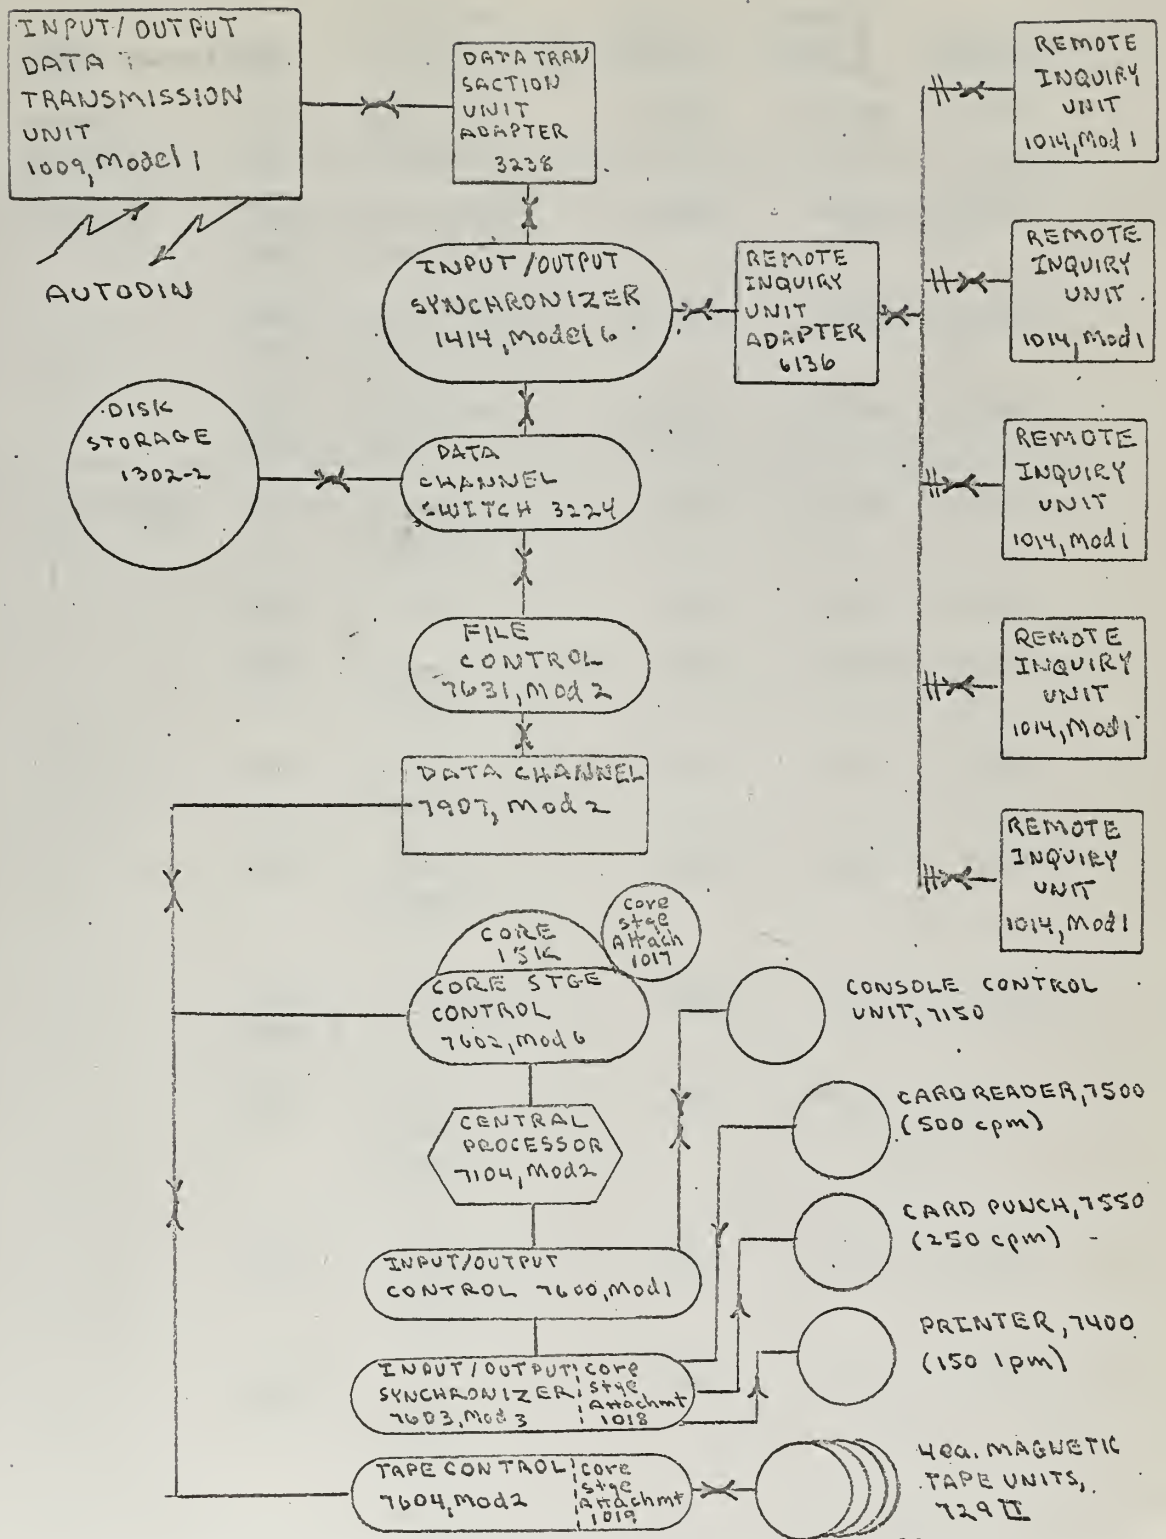 INPUT/OUTPUT
DATA
TRANSMISSION
UNIT
1009, Model 1
AUTODIN
DATA TRAN
SACTION
UNIT
ADAPTER
3238
INPUT/OUTPUT
SYNCHRONIZER
1414, Model 6
REMOTE
INQUIRY
UNIT
ADAPTER
6136
REMOTE
INQUIRY
UNIT
1014, Mod 1
REMOTE
INQUIRY
UNIT
1014, Mod 1
REMOTE
INQUIRY
UNIT
1014, Mod 1
REMOTE
INQUIRY
UNIT
1014, Mod 1
REMOTE
INQUIRY
UNIT
1014, Mod 1
DISK
STORAGE
1302-2
DATA
CHANNEL
SWITCH 3224
FILE
CONTROL
7631, Mod 2
DATA CHANNEL
7907, Mod 2
CORE
15K
Core
stge
Attach
1017
CORE STGE
CONTROL
7602, Mod 6
CENTRAL
PROCESSOR
7104, Mod 2
INPUT/OUTPUT
CONTROL 7600, Mod 1
INPUT/OUTPUT
SYNCHRONIZER
7603, Mod 3
Core
stge
Attachmt
1018
TAPE CONTROL
7604, Mod 2
Core
stge
Attachmt
1019
CONSOLE CONTROL
UNIT, 7150
CARD READER, 7500
(500 cpm)
CARD PUNCH, 7550
(250 cpm)
PRINTER, 7400
(150 lpm)
4 ea. MAGNETIC
TAPE UNITS,
729 II